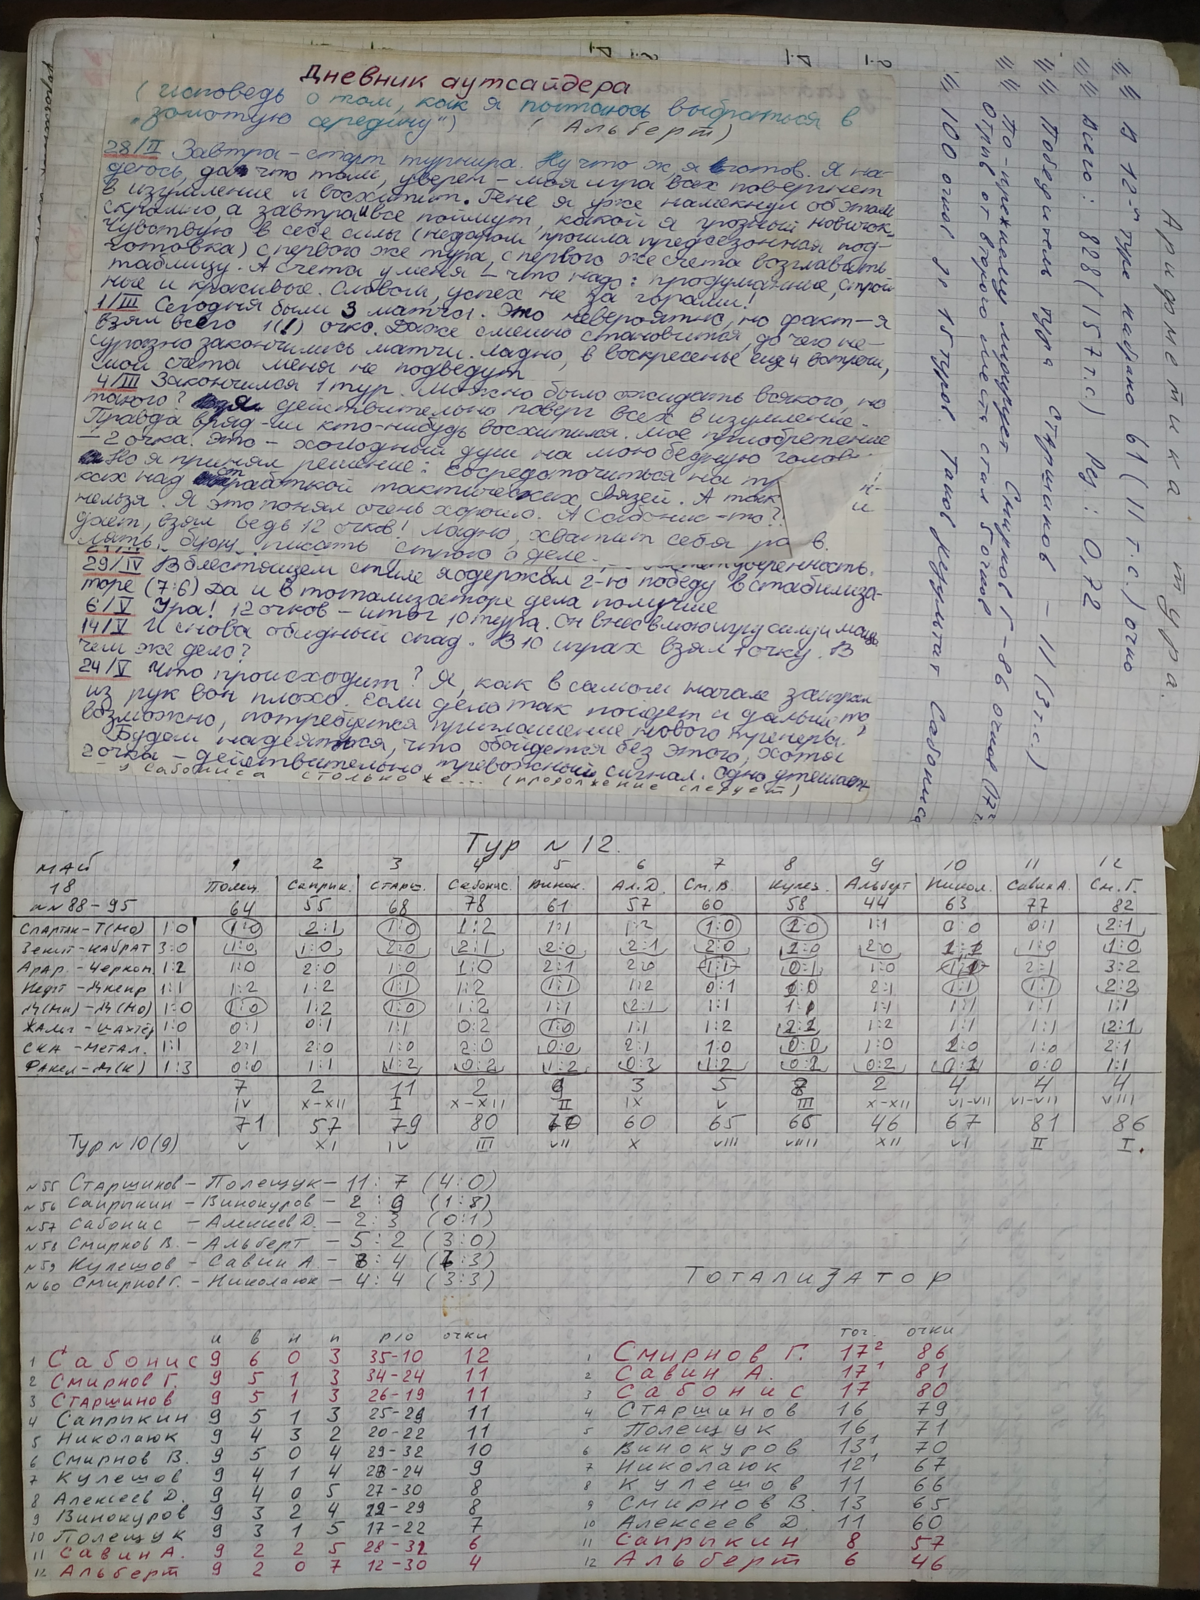 Дневник аутсайдера
(Исповедь о том, как я пытаюсь выбраться в
"золотую середину") (Альберт)
28/II Завтра - старт турнира. Ну что ж я готов. Я на-
деюсь, да что там, уверен - моя игра всех повергнет
в изумление и восхитит. Гене я уже намекнул об этом
скромно, а завтра все поймут, какой я грозный новичок.
Чувствую в себе силы (недаром прошла предсезонная под-
готовка) с первого же тура, с первого же счета возглавить
таблицу. А счета у меня - что надо: продуманные, строй
ные и красивые. Словом, успех не за горами!
1/III Сегодня были 3 матча. Это невероятно, но факт - я
взял всего 1(!) очко. Даже смешно становится, до чего не-
серьезно закончились матчи. Ладно, в воскресенье еще 4 встречи,
мои счета меня не подведут
4/III Закончился 1 тур. Можно было ожидать всякого, но
такого? я действительно поверг всех в изумление.
Правда вряд-ли кто-нибудь восхитился. Мое приобретение
- 2 очка. Это - холодный душ на мою бедную голов
Но я принял решение: сосредоточиться на
ках над отработкой тактических связей. А так
нельзя. Я это понял очень хорошо. А Сабонис-то?
дает, взял ведь 12 очков! Ладно, хватит себя
буду писать строго о деле.
29/IV В блестящем стиле я одержал 2-ю победу в стабилиза-
торе (7:6) Да и в тотализаторе дела получше
6/V Ура! 12 очков - итог 10 тура. Он внес в мою игру
14/V И снова обидный спад. В 10 играх взял 1 очку. В
чем же дело?
24/V Что происходит? Я, как в самом начале заиграл
из рук вон плохо. Если дело так пойдет и дальше то,
возможно, потребуется приглашение нового тренера.
Будем надеяться, что обойдется без этого, хотя
2 очка - действительно тревожный сигнал. Одно утешает
у Сабониса столько же... (продолжение следует)
Арифметика тура
В 12-м туре набрано 61 (III т.с.) очко
Всего: 828 (157 т.с.) Рез: 0,72
Победитель тура Старшинов - 11 (3 т.с.)
По-прежнему лидирует Смирнов Г - 86 очков (17²)
Отрыв от второго места стал 5 очков
100 очков за 15 туров. Таков результат Сабониса
Тур №12.
МАЙ 1 2 3 4 5 6 7 8 9 10 11 12
18 Полещ. Саприк. Старш. Сабонис Винок. Ал.Д. См.В Кулеш. Альберт Никол. Савин А. См.Г.
№№88-95 64 55 68 78 61 57 60 58 44 63 77 82
Спартак-Т(Мо) 1:0 1:0 2:1 1:0 1:2 1:1 1:2 1:0 1:0 1:1 0:0 0:1 2:1
Зенит-Кайрат 3:0 1:0 1:0 2:0 2:1 2:0 2:1 2:0 1:0 2:0 1:0 1:0
Арар.-Черном 1:2 1:0 2:0 1:0 1:0 2:1 2:0 1:1 0:1 1:0 1:1 2:1 3:2
Нефт-Днепр 1:1 1:2 1:2 1:1 1:2 1:1 1:2 0:1 1:0 2:1 1:1 1:1 2:2
Д(Мн)-Д(Мо) 1:0 1:0 1:2 1:0 1:2 1:1 2:1 1:1 1:1 1:1 1:1 1:1 1:1
Жальг-Шахтёр 1:0 0:1 0:1 1:1 0:2 1:0 1:1 1:2 2:1 1:2 1:1 1:1 2:1
СКА-Метал. 1:1 2:1 2:0 1:0 2:0 0:0 2:1 1:0 0:0 1:0 2:0 1:0 2:1
Факел-Д(К) 1:3 0:0 1:1 1:2 0:2 1:2 0:3 1:2 0:2 0:2 0:1 0:0 1:1
7 2 11 2 9 3 5 8 2 4 4 4
IV X-XII I X-XII II IX V III X-XII VI-VII VI-VII VIII
71 57 79 80 70 60 65 66 46 67 81 86
Тур №10(9) V XI IV III VII X VIII VIII XII VI II I.
№55 Старшинов - Полещук - 11:7 (4:0)
№56 Саприкин - Винокуров - 2:9 (1:8)
№57 Сабонис - Алексеев Д. - 2:3 (0:1)
№58 Смирнов В. - Альберт - 5:2 (3:0)
№59 Кулешов - Савин А - 8:4 (:3)
№60 Смирнов Г. - Николаюк - 4:4 (3:3)
и в н п р/о очки
1 Сабонис 9 6 0 3 35-10 12
2 Смирнов Г. 9 5 1 3 34-24 11
3 Старшинов 9 5 1 3 26-19 11
4 Саприкин 9 5 1 3 25-29 11
5 Николаюк 9 4 3 2 20-22 11
6 Смирнов В. 9 5 0 4 29-32 10
7 Кулешов 9 4 1 4 28-24 9
8 Алексеев Д. 9 4 0 5 27-30 8
9 Винокуров 9 3 2 4 -29 8
10 Полещук 9 3 1 5 17-22 7
11 Савин А. 9 2 2 5 28-32 6
12 Альберт 9 2 0 7 12-30 4
ТОТАЛИЗАТОР
точ очки
1 Смирнов Г. 17² 86
2 Савин А. 17¹ 81
3 Сабонис 17 80
4 Старшинов 16 79
5 Полещук 16 71
6 Винокуров 13¹ 70
7 Николаюк 12¹ 67
8 Кулешов 11 66
9 Смирнов В. 13 65
10 Алексеев Д. 11 60
11 Саприкин 8 57
12 Альберт 6 46